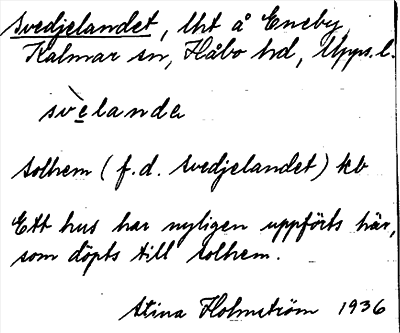 Svedjelandet, lht å Eneby,
Kalmar sn, Håbo hd, Upps.l.
svè̱landə
Solhem (f.d. Svedjelandet) kb
Ett hus har nyligen uppförts här,
som döpts till Solhem.
Stina Holmström 1936